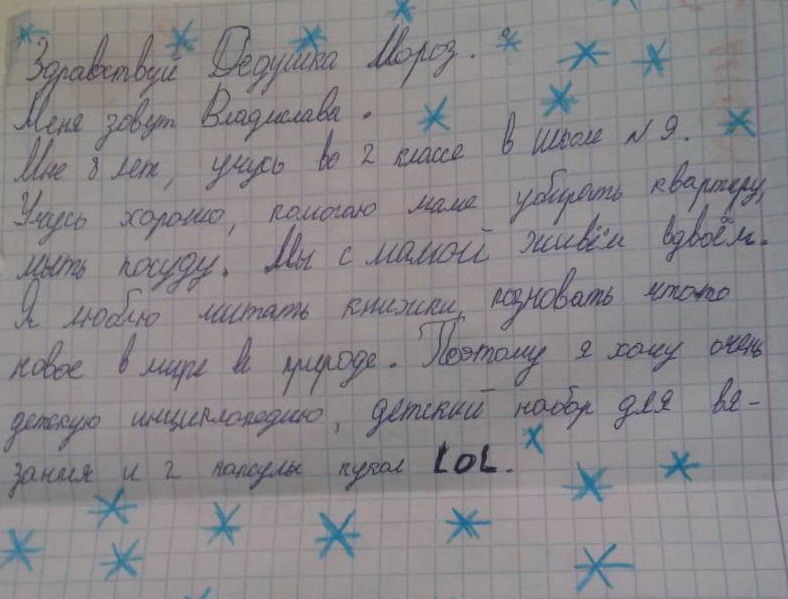 Здравствуй Дедушка Мороз.
Меня зовут Владислава.
Мне 8 лет, учусь во 2 классе в школе №9.
Учусь хорошо, помогаю маме убирать квартиру,
мыть посуду. Мы с мамой живём вдвоём.
Я люблю читать книжки, позновать что-то
новое в мире и природе. Поэтому я хочу очень
детскую инциклопедию, детский набор для вя-
зания и 2 капсулы кукол LOL.